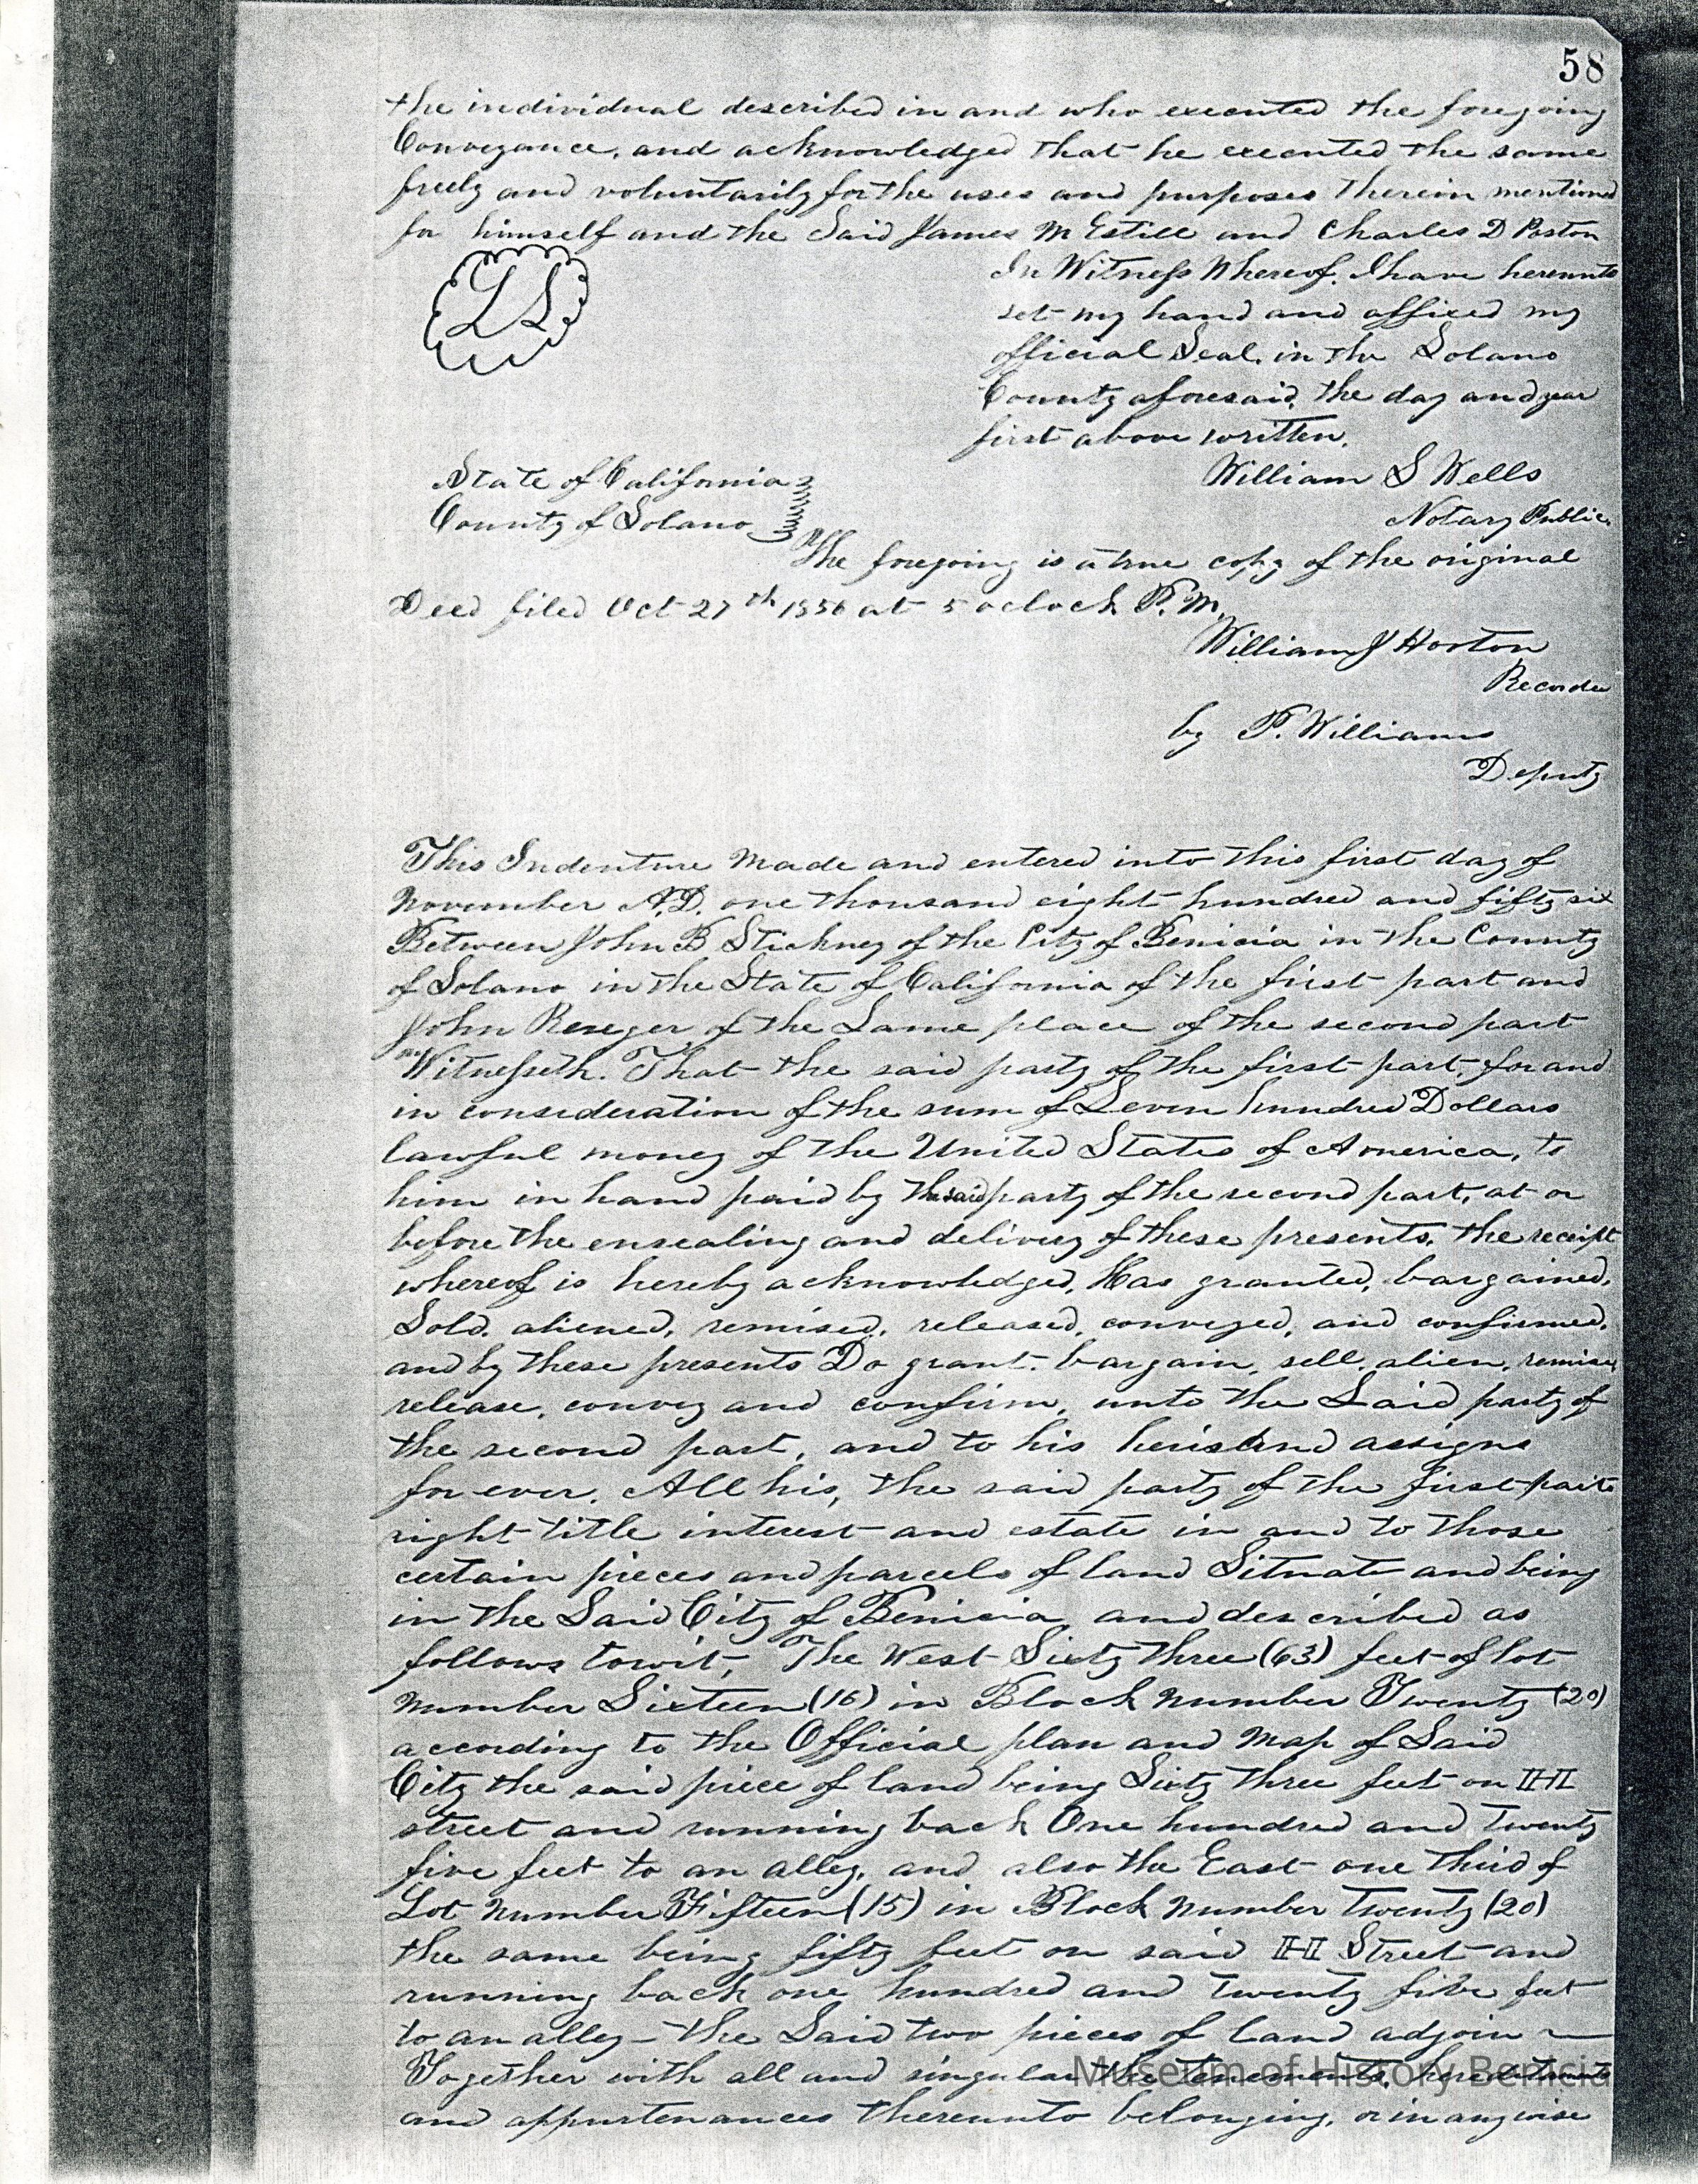 58
the individual described in and who executed the foregoing
Conveyance, and acknowledged that he executed the same
freely and voluntarily for the uses and purposes therein mentioned
for himself and the Said James M Estill and Charles D Poston
In Witness Whereof. I have hereunto
set my hand and affixed my
official Seal, in the Solano
County aforesaid, the day and year
first above written.
LS
William S Wells
Notary Public.
State of California
County of Solano
The foregoing is a true copy of the original
Deed filed Oct 27th 1856 at 5 oclock P.M.
William J Horton
Recorder
by P. Williams
Deputy
This Indenture Made and entered into this first day of
November A.D. one thousand eight hundred and fifty six
Between John B Stickney of the City of Benicia in the County
of Solano in the State of California of the first part and
John Rueger, of the Same place of the second part
Witnesseth. That the said party of the first part, for and
in consideration of the sum of Seven hundred Dollars
lawful money of the United States of America, to
him in hand paid by the said party of the second part, at or
before the ensealing and delivery of these presents, the receipt
whereof is hereby acknowledged, Has granted, bargained,
Sold, aliened, remised, released, conveyed, and confirmed,
and by these presents Do grant, bargain, sell, alien, remise,
release, convey and confirm, unto the Said party of
the second part, and to his heirs and assigns
for ever. All his, the said party of the first parts
right title interest and estate in and to those
certain pieces and parcels of land Situate and being
in the Said City of Benicia and described as
follows towit, The West Sixty three (63) feet of lot
Number Sixteen (16) in Block Number Twenty (20)
according to the Official plan and Map of Said
City the said piece of land being Sixty three feet on H
street and running back One hundred and Twenty
five feet to an alley, and also the East one third of
Lot Number Fifteen (15) in Block Number Twenty (20)
the same being fifty feet on said H Street and
running back one hundred and Twenty five feet
to an alley - the Said two pieces of land adjoin
Together with all and singular the tenements, hereditaments
and appurtenances thereunto belonging, or in any wise
Museum of History Benicia